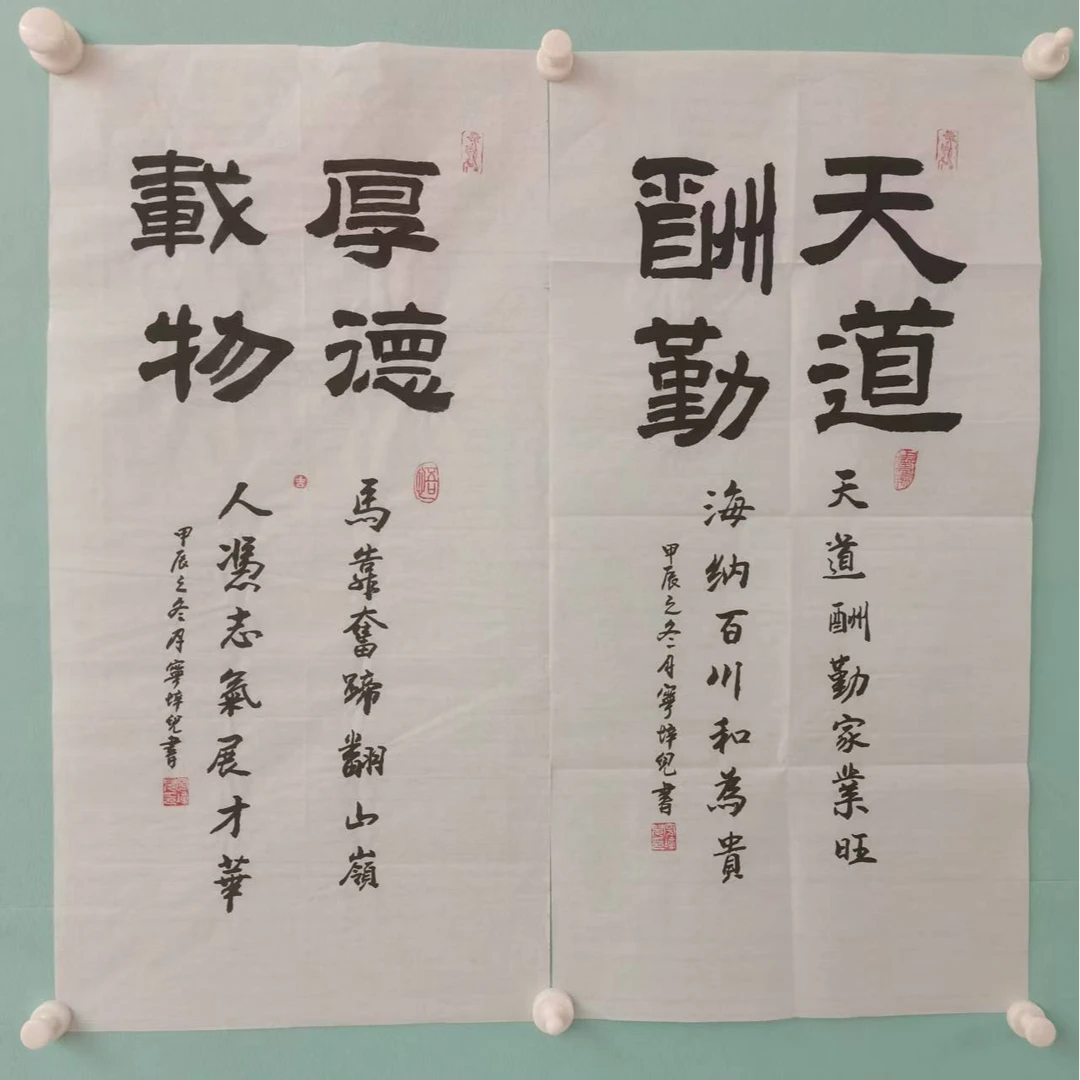 天道
酬勤
天道酬勤家業旺
海納百川和為貴
甲辰之冬月寧梓兒書
厚德
載物
馬靠奮蹄翻山嶺
人憑志氣展才華
甲辰之冬月寧梓兒書